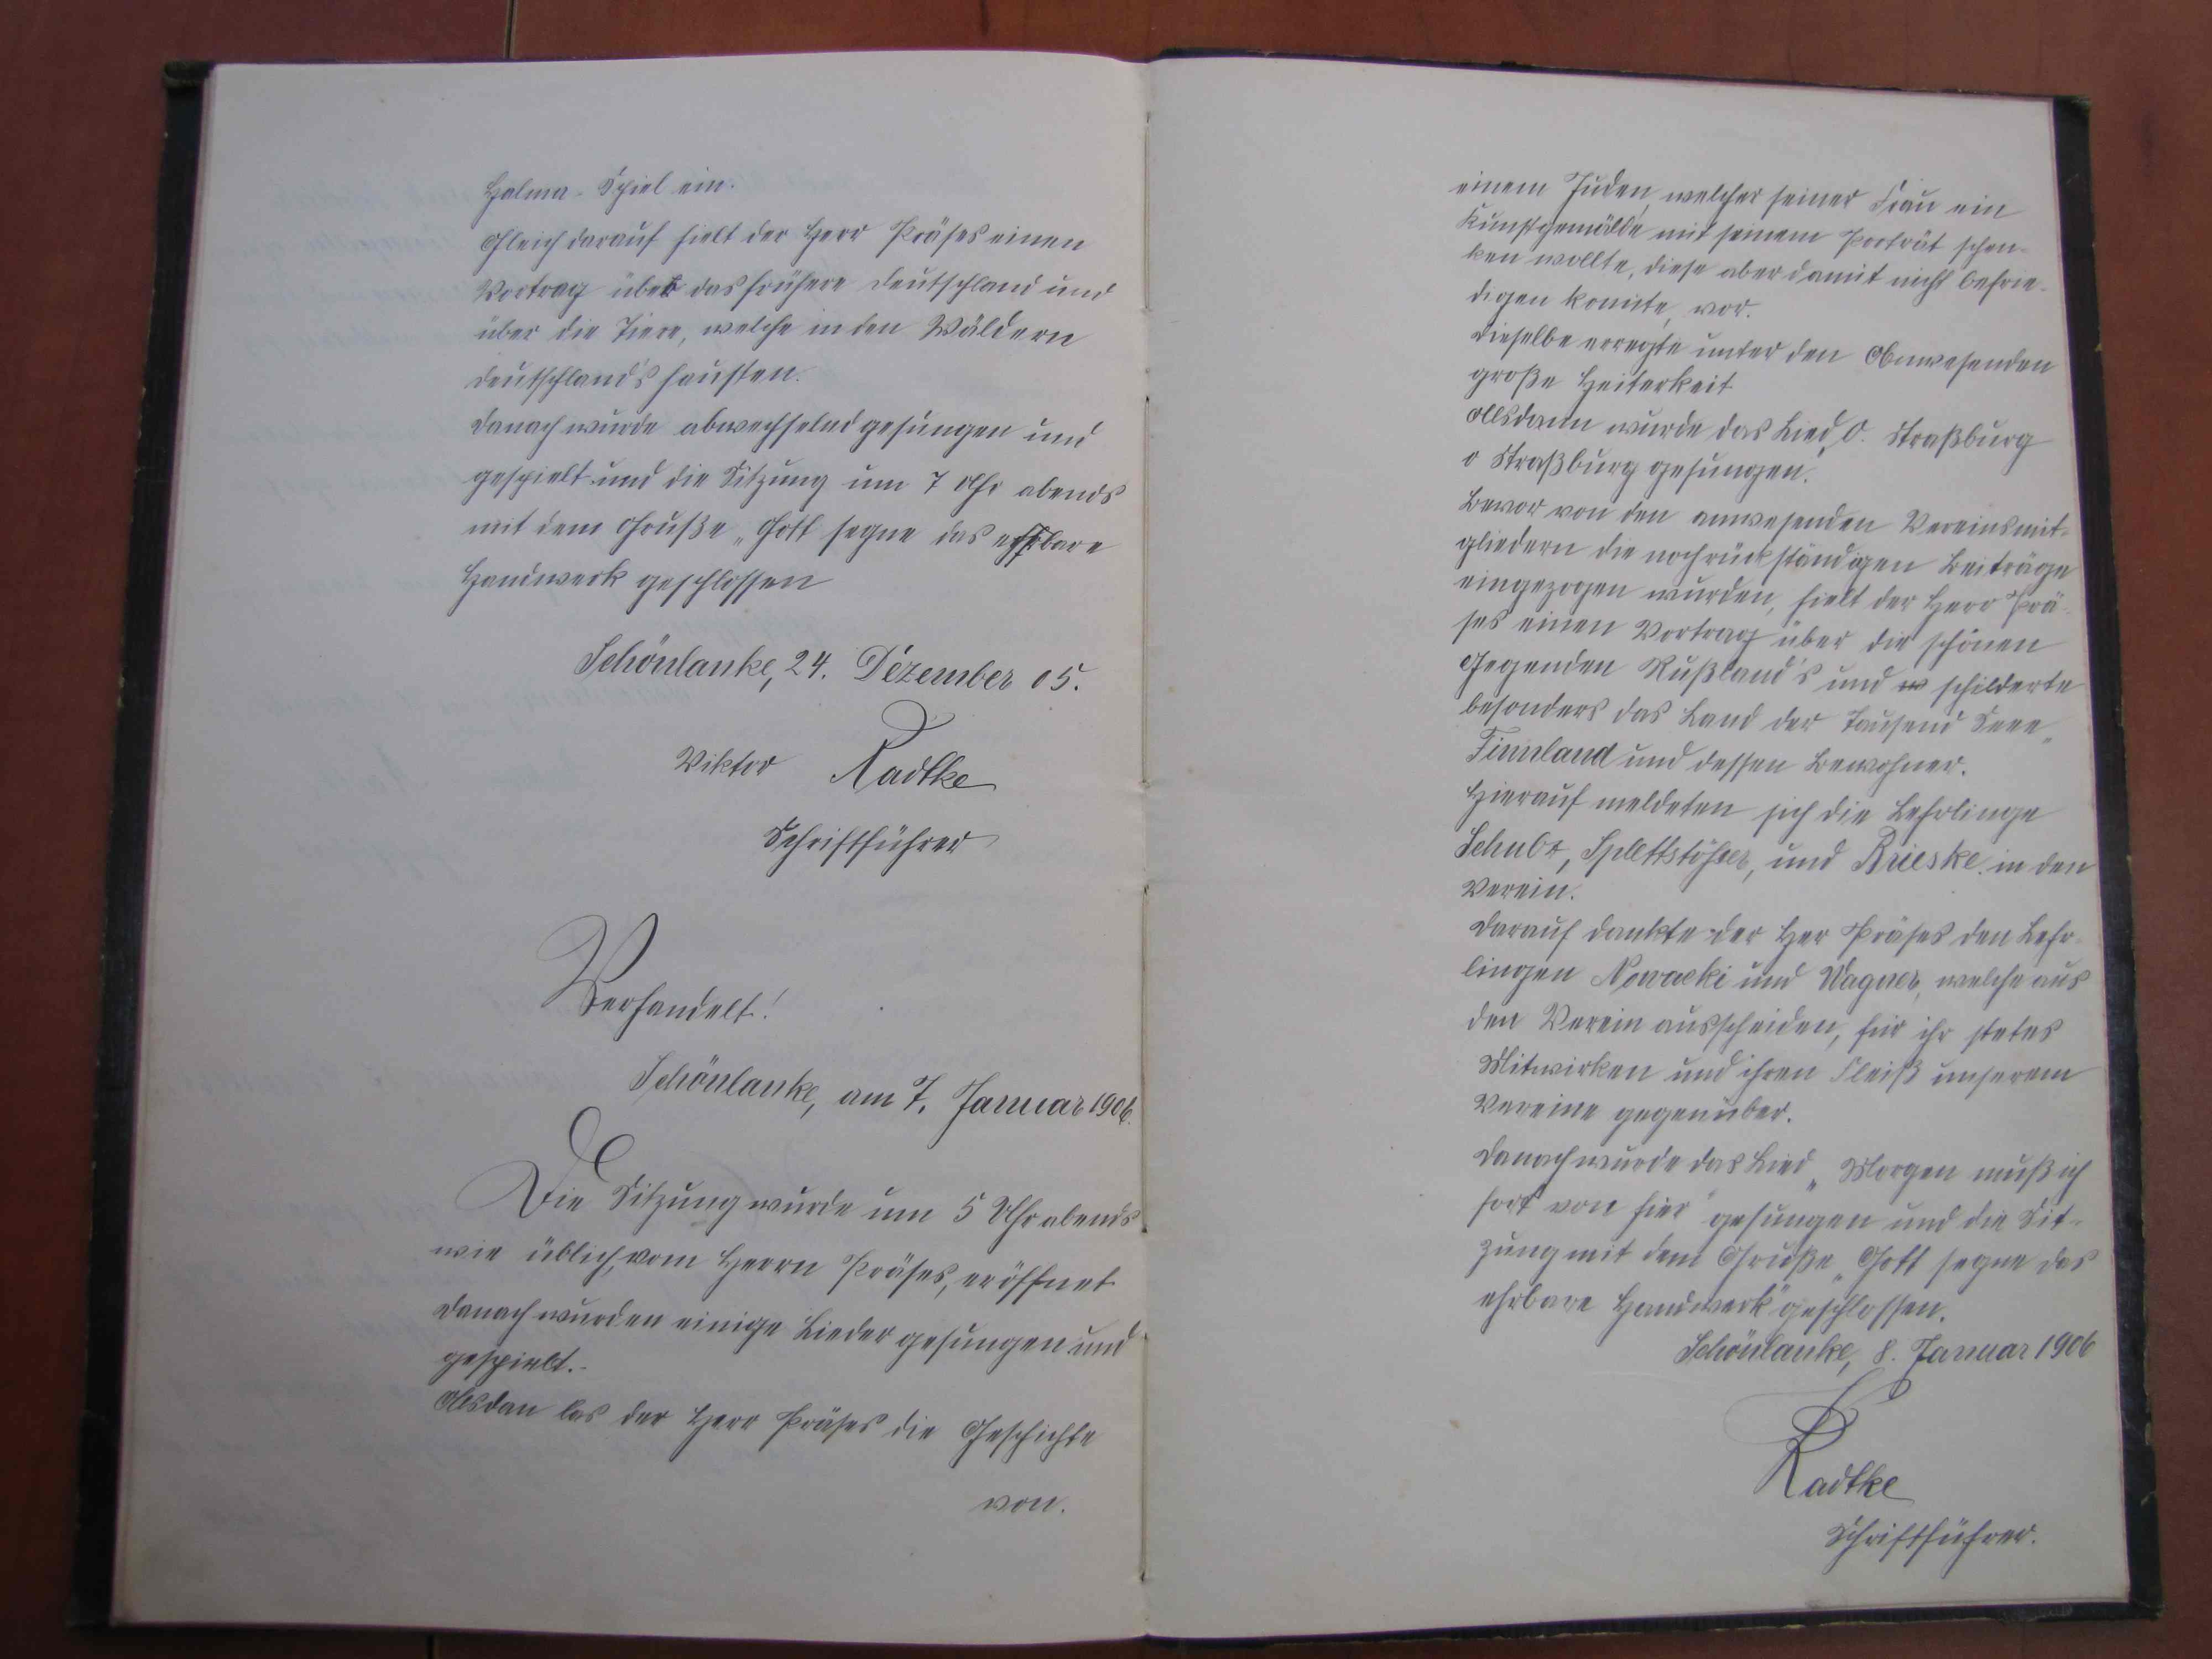 Halma-Spiel ein.
Gleich darauf hielt der Herr Präses einen
Vortrag über das frühere Deutschland und
über die Tiere, welche in den Wäldern
Deutschland's hausten.
Danach wurde abwechselnd gesungen und
gespielt und die Sitzung um 7 Uhr abends
mit dem Gruße „Gott segne das ehrbare
Handwerk geschlossen
Schönlanke, 24. Dezember 05.
Viktor Radtke
Schriftführer
Verhandelt!
Schönlanke, am 7. Januar 1906.
Die Sitzung wurde um 5 Uhr abends
wie üblich, vom Herrn Präses, eröffnet
Danach wurden einige Lieder gesungen und
gespielt.-
Alsdan las der Herr Präses die Geschichte
von.
einem Juden, welcher seiner Frau ein
Kunstgemälde mit seinem Porträt schen-
ken wollte, diese aber damit nicht befrie-
digen konnte, vor.
Dieselbe erregte unter den Anwesenden
große Heiterkeit
Alsdann wurde das Lied „O. Straßburg
o Straßburg gesungen.
Bevor von den anwesenden Vereinsmit-
gliedern die noch rückständigen Beiträge
eingezogen wurden, hielt der Herr Prä-
ses einen Vortrag über die schönen
Gegenden Rußland's und schilderte
besonders das Land der Tausend Seen „
Finnland und dessen Bewohner.
Hierauf meldeten sich die Lehrlinge
Splettstößer, und Brieske in den
Verein.
Darauf dankte der Her Präses den Lehr-
lingen Nowacki und Wagner, welche aus
den Verein ausscheiden, für ihr stetes
Mitwirken und ihren Fleiß unserem
Vereine gegenüber.
Danach wurde das Lied „Morgen muß ich
fort von hier" gesungen und die Sit-
zung mit dem Gruße „Gott segne das
ehrbare Handwerk" geschlossen.
Schönlanke, 8. Januar 1906
Radtke
Schriftführer.